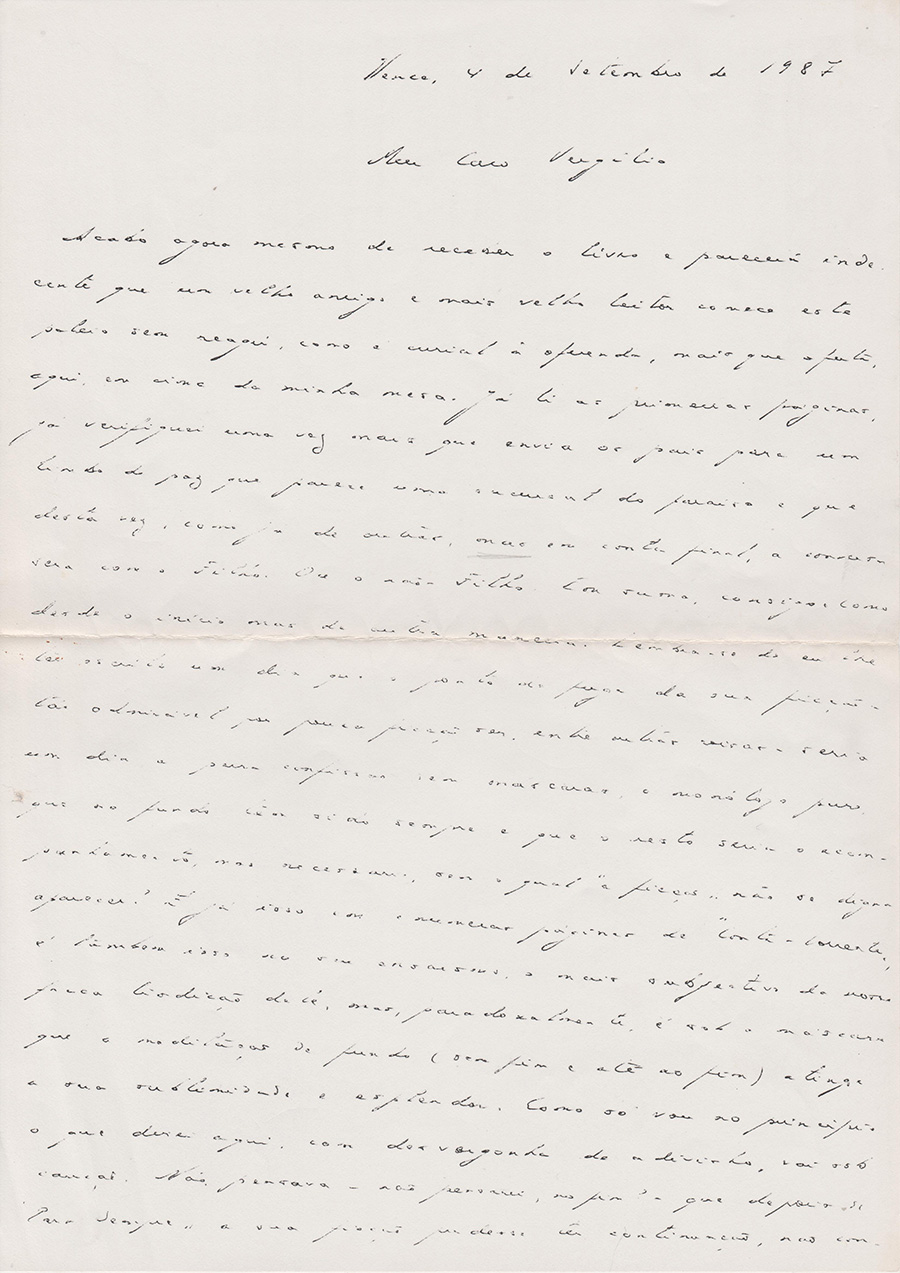 Vence, 4 de Setembro de 1987
Meu Caro Vergílio
Acabo agora mesmo de receber o livro e parecerá inde-
cente que um velho amigo e mais velho leitor comece este
paleio sem reagir, como é curial à oferenda, mais que oferta,
aqui, em cima da minha mesa. Já li as primeiras páginas,
já verifiquei uma vez mais que envia os pais para um
limbo de paz que parece uma sucursal do paraíso e que
desta vez, como já de outras, mas em conta final, a conversa
será com o Filho. Ou o não-Filho. Em suma, consigo como
desde o início mas de outra maneira. Lembra-se de eu lhe
ter escrito um dia que o ponto de fuga da sua ficção -
tão admirável por pouca ficção ser, entre outras coisas - seria
um dia a pura confissão sem máscaras, o monólogo puro
que no fundo têm sido sempre e que o resto seria o acom-
panhamento, mas necessário, sem o qual "a ficção" não se digna
aparecer? É já isso em inúmeras páginas de "Conta-Corrente",
é também isso no seu ensaísmo, o mais subjectivo da nossa
fraca tradição dele, mas, paradoxalmente, é sob a máscara
que a meditação de fundo (sem fim e até ao fim) atinge
a sua sublimidade e esplendor. Como só vou no princípio
o que direi aqui, com desvergonha de adivinho, vai sob
caução. Não pensava - não pensei, no fim - que depois de
"Para Sempre" a sua ficção pudesse ter continuação, não con-